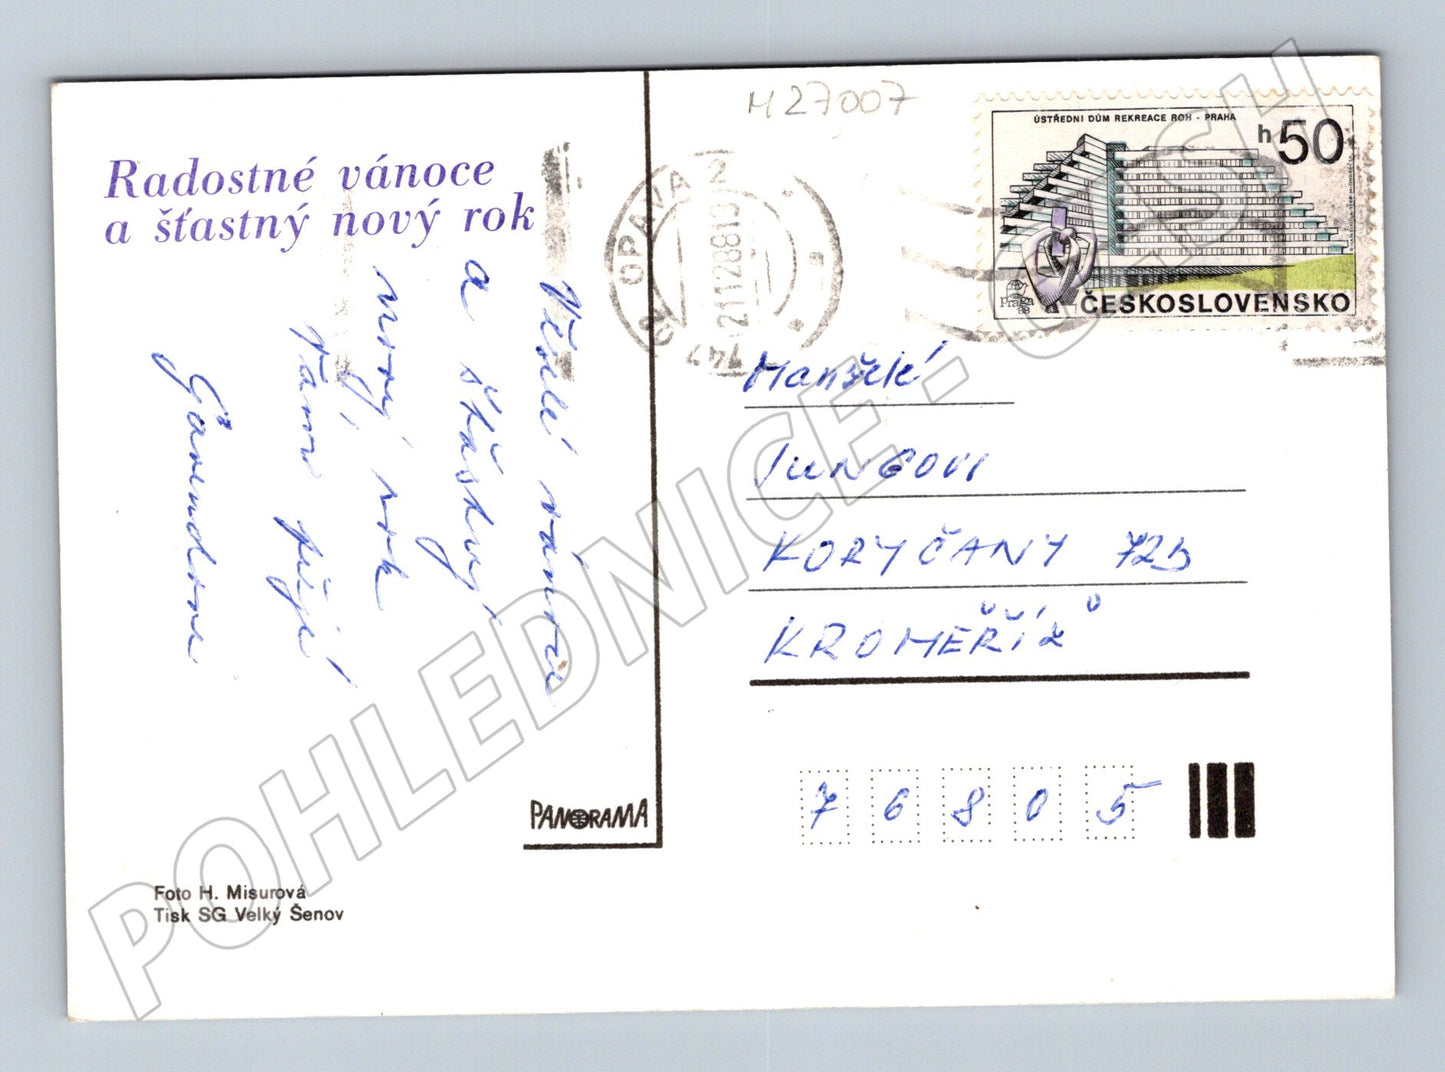 Radostné vánoce
a šťastný nový rok
Veselé vánoce
a šťastný
nový rok
Vám přejí
M 27007
OPAVA 2
21.12.88 19
747
ÚSTŘEDNÍ DŮM REKREACE ROH - PRAHA
h50
Praga 88
ČESKOSLOVENSKO
Manželé
JUNGOVI
KORYČANY 725
KROMĚŘÍŽ
76805
PANORAMA
Foto H. Misurová
Tisk SG Velký Šenov
POHLEDNICE - CASH